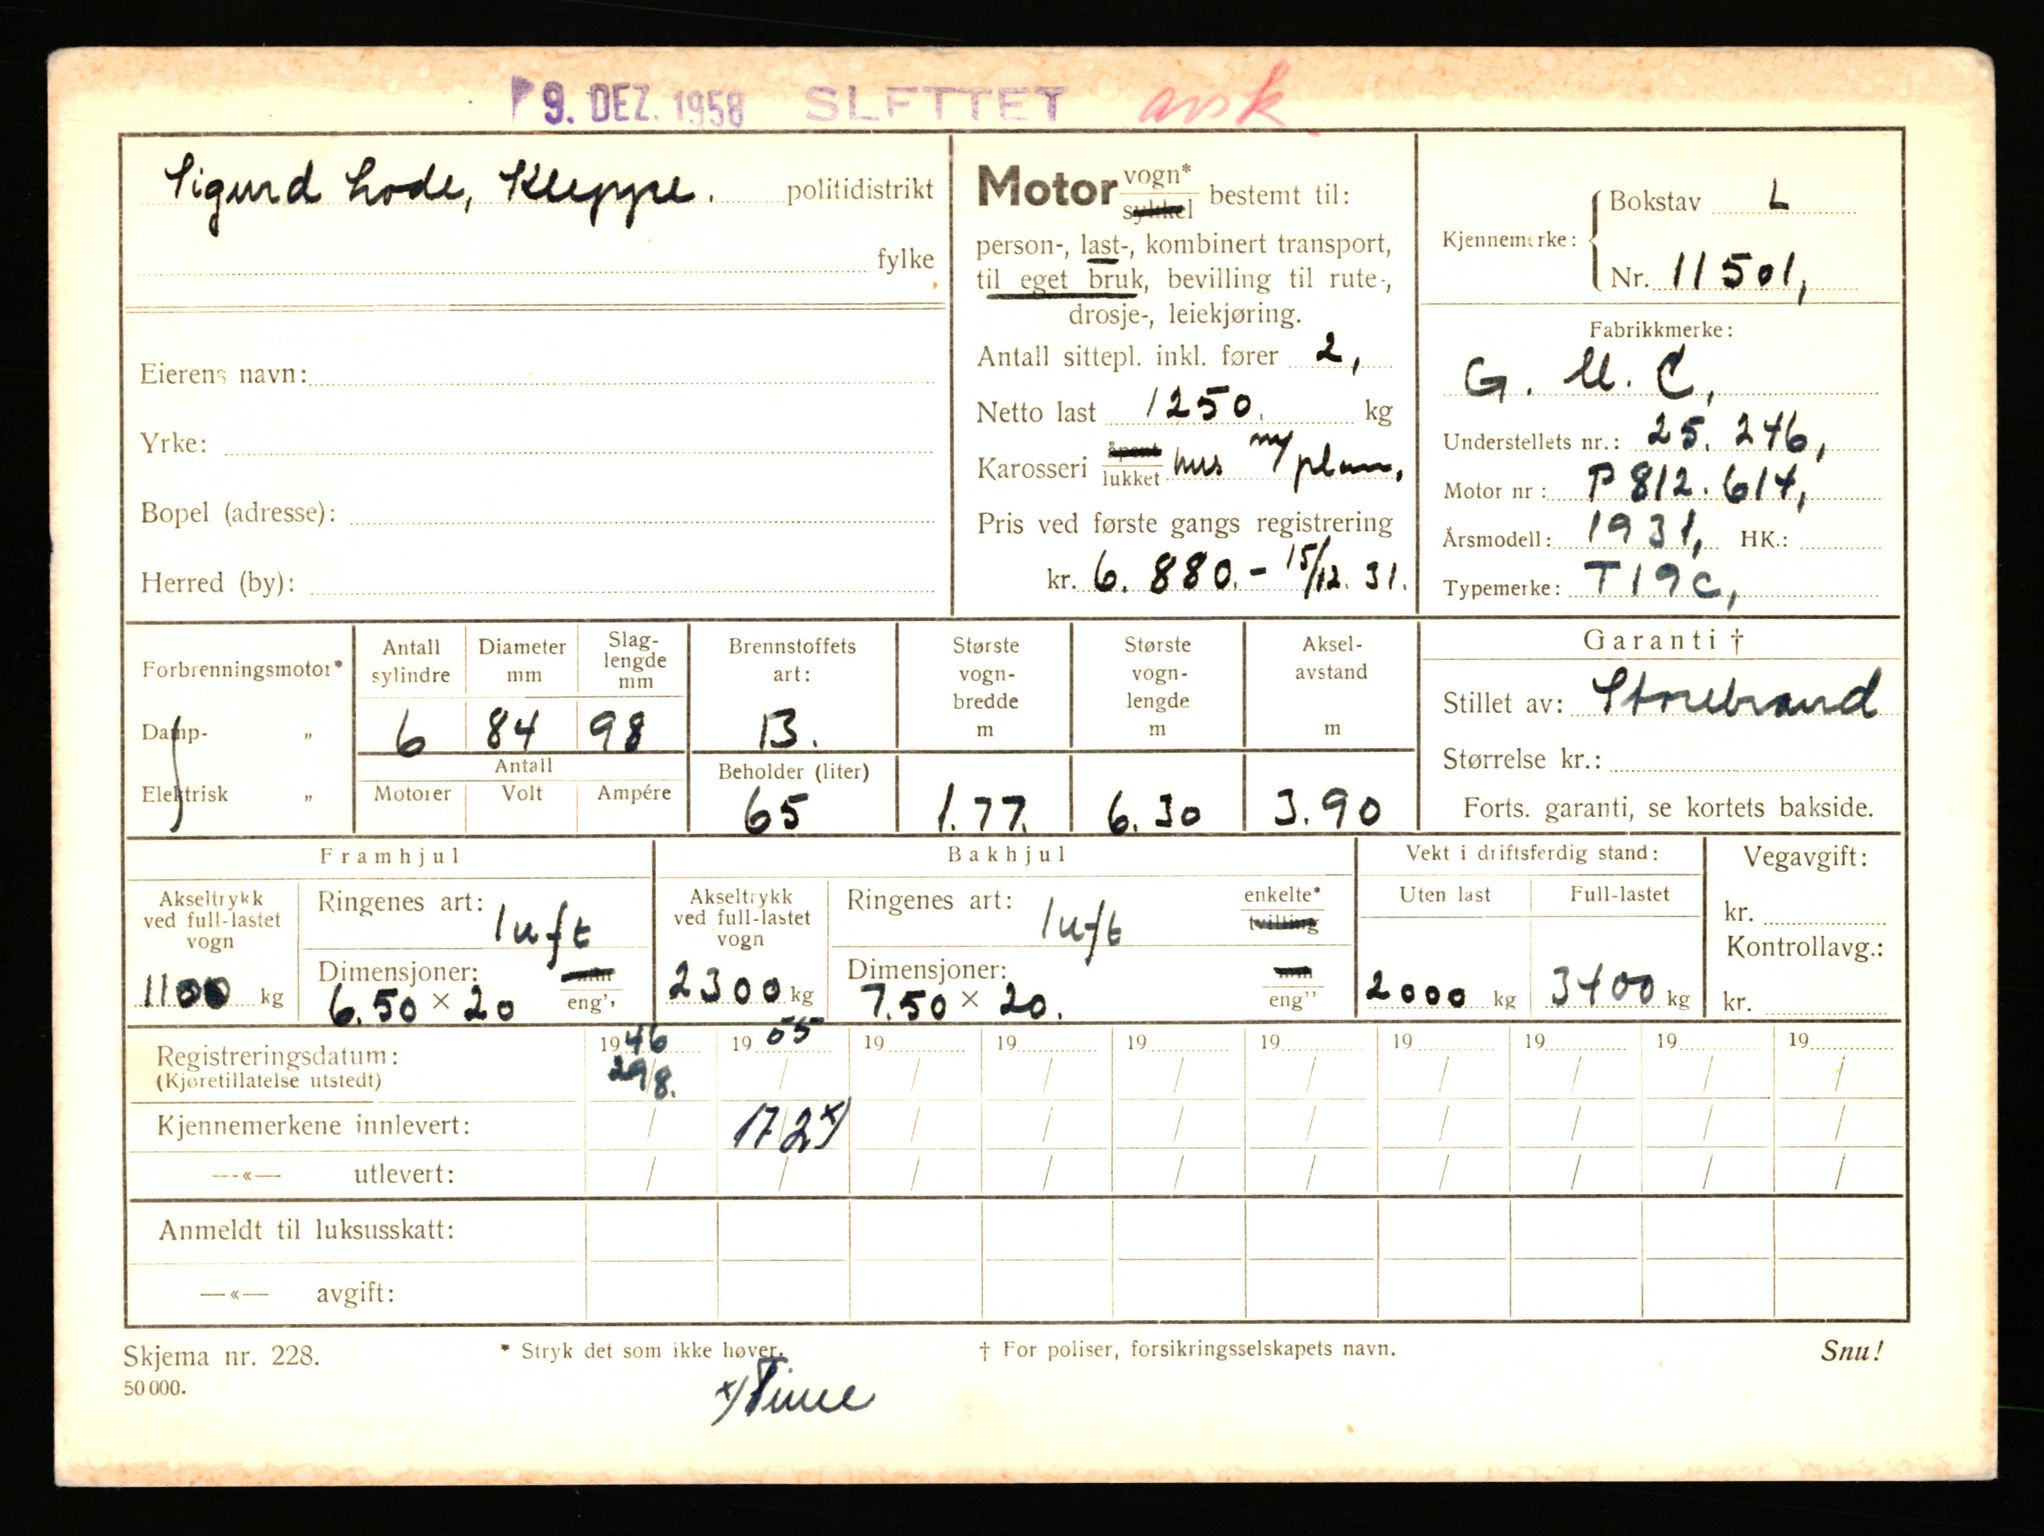 9. DEZ. 1958 SLETTET avsk
Sigurd Lode, Kleppe. politidistrikt
fylke
Eierens navn:
Yrke:
Bopel (adresse):
Herred (by):
Motor vogn* sykkel bestemt til:
person-, last-, kombinert transport,
til eget bruk, bevilling til rute-,
drosje-, leiekjøring.
Antall sittepl. inkl. fører 2,
Netto last 1250. kg
Karosseri åpent lukket hus m/ plan,
Pris ved første gangs registrering
kr. 6.880.- 15/12.31.
Kjennemerke: Bokstav L
Nr. 11501,
Fabrikkmerke:
G. M. C,
Understellets nr.: 25.246,
Motor nr: P 812.614,
Årsmodell: 1931, HK.:
Typemerke: T19C,
Forbrenningsmotor*
Damp- „
Elektrisk „
Antall sylindre Diameter mm Slag-lengde mm
6 84 98
Antall
Motorer Volt Ampére
Brennstoffets art:
B.
Beholder (liter)
65
Største vogn-bredde m
1.77.
Største vogn-lengde m
6.30
Aksel-avstand m
3.90
Garanti †
Stillet av: Storebrand
Størrelse kr.:
Forts. garanti, se kortets bakside.
Framhjul
Akseltrykk ved full-lastet vogn
1100 kg
Ringenes art: luft
Dimensjoner: eng''
6.50 × 20
Bakhjul
Akseltrykk ved full-lastet vogn
2300 kg
Ringenes art: luft enkelte* tvilling
Dimensjoner: eng''
7.50 × 20.
Vekt i driftsferdig stand:
Uten last Full-lastet
2000 kg 3400 kg
Vegavgift:
kr.
Kontrollavg.:
kr.
Registreringsdatum: 1946 1955 19 19 19 19 19 19 19 19
(Kjøretillatelse utstedt) 29/8. / / / / / / / / /
Kjennemerkene innlevert: / 17/2 x) / / / / / / / /
—«— utlevert: / / / / / / / / / /
Anmeldt til luksusskatt:
—«— avgift:
Skjema nr. 228. * Stryk det som ikke høver. † For poliser, forsikringsselskapets navn. Snu!
50 000.
x) Time